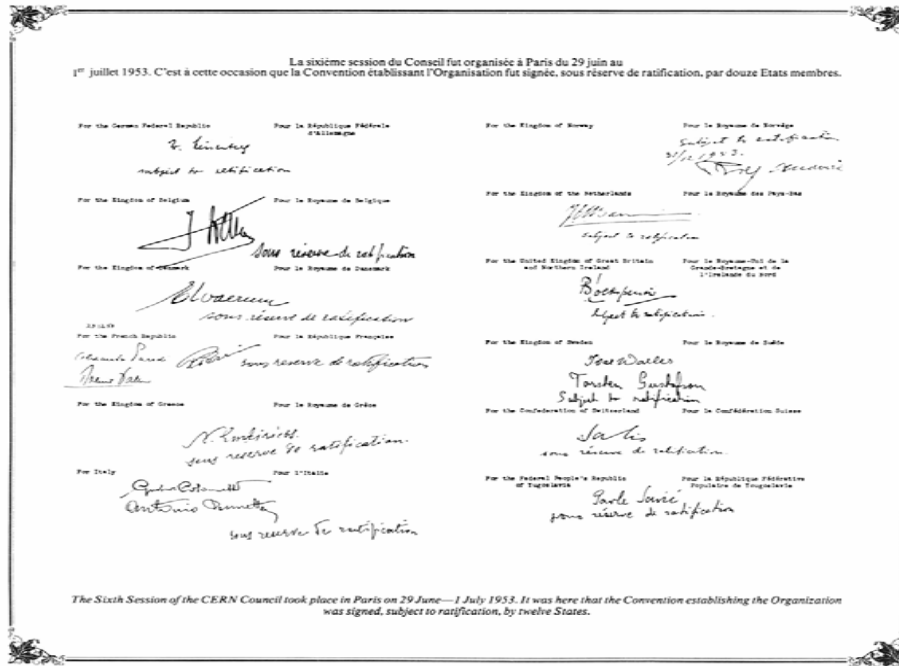 La sixième session du Conseil fut organisée à Paris du 29 juin au
1er juillet 1953. C'est à cette occasion que la Convention établissant l'Organisation fut signée, sous réserve de ratification, par douze Etats membres.
For the German Federal Republic
Pour la République Fédérale
d'Allemagne
subject to ratification
For the Kingdom of Belgium
Pour le Royaume de Belgique
sous réserve de ratification
For the Kingdom of Denmark
Pour le Royaume de Danemark
sous réserve de ratification
For the French Republic
Pour la République Française
sous reserve de ratification
For the Kingdom of Greece
Pour le Royaume de Grèce
sous reserve de ratification.
For Italy
Pour l'Italie
Antonio
sous reserve de ratification
For the Kingdom of Norway
Pour le Royaume de Norvège
Subject to ratification
31/12 1953.
For the Kingdom of the Netherlands
Pour le Royaume des Pays-Bas
subject to ratification
For the United Kingdom of Great Britain
and Northern Ireland
Pour le Royaume-Uni de la
Grande-Bretagne et de
l'Irelande du Nord
Subject to ratification.
For the Kingdom of Sweden
Pour le Royaume de Suède
Torsten Gustafson
Subject to ratification
For the Confederation of Switzerland
Pour la Confédération Suisse
Salis
sous réserve de ratification.
For the Federal People's Republic
of Yugoslavia
Pour la République Fédérative
Populaire de Yougoslavie
Pavle Savić
sous réserve de ratification
The Sixth Session of the CERN Council took place in Paris on 29 June—1 July 1953. It was here that the Convention establishing the Organization
was signed, subject to ratification, by twelve States.